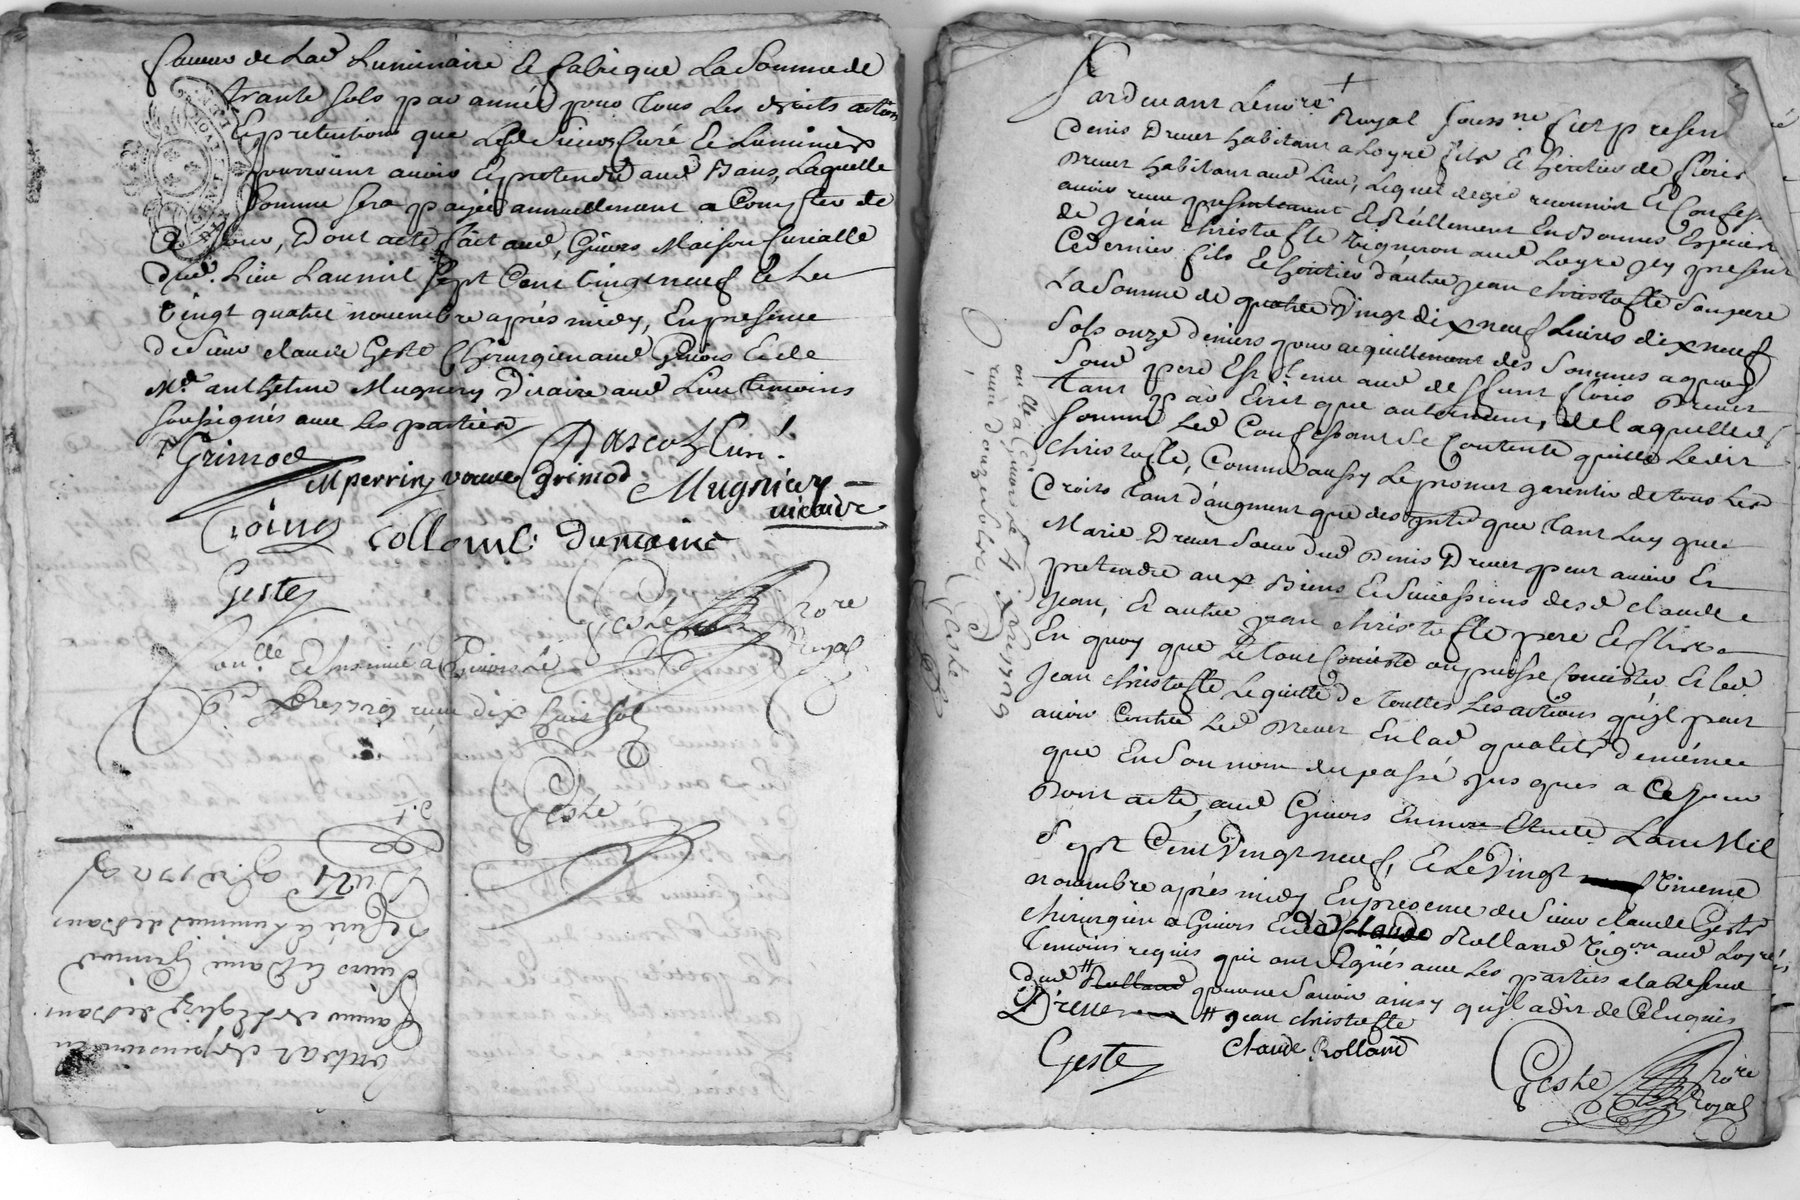 faveur de lad luminaire et fabrique la somme de
trante sols par année pour tous les droits actions
et prétentions que lesd sieurs curé et luminiers
pourroient avoir et pretendre aud Bans, laquelle
somme sera payée annuellement a compter de
ce jour, Dont acte fait aud Givors Maison curialle
dud. lieu l'an mil sept cent vingt neuf et le
vingt quatre novembre après midy, En presence
de sieur claude Geste chirurgien aud Givors et de
Mre anthelme Mugniery vicaire aud lieu temoins
soussignés avec les parties
Grimod
Dascot curé
Mperrin veuve Grimod
Mugniery
vicaire
collomb
Dumaine
Geste
Geste
no.re
Royal
Con.lé et insinué a Givors le
xbre reçu dix huit sols
Geste
Du 24 9bre 1729
Pardevant le no.re Royal souss.né fut present
Denis Drevet habitant a Loyre fils et heritier de floris
Drevet habitant aud lieu, lequel de gré reconnoit et confesse
avoir receu presentement et réellement en bonnes espèces
de jean christofle vigneron aud Loyre jcy present
ce dernier fils et heritier d'autre jean christofle son pere
la somme de quatre vingt dix neuf livres dix neuf
sols onze deniers pour acquittement des sommes aquoy
sond pere est tenu aud deffunt floris Drevet
tant par écrit que autrement, de laquelle d
somme led confessant se contente quitte ledit
christofle, comme aussy le promet garentir de tous les
droits tant d'augment que des que tant luy que
Marie Drevet soeur dud Denis Drevet peut avoir et
pretendre aux Biens et successions desd claude
jean, et autre jean christofle pere et fils
en quoy que le tout consiste ou puisse consister et led
jean christofle le quitte de touttes les actions qu'jl peut
avoir contre led Drevet en lad qualité de même
que en son nom du passé jusques a ce jour
Dont acte, aud Givors en mon etude l'an Mil
sept cent vingt neuf, et le vingt
novembre après midy en presence de sieur claude Geste
chirurgien a Givors et de claude Rolland vig.on aud Loyre
temoins requis qui ont signés avec les parties a la reserve
dud Rolland pour ne savoir ainsy qu'jl a dit de ce enquis
Drevet
jean christofle
claude Rolland
Geste
Geste
no.re
Royal
con.lé a Givors le 4 xbre 1729
reçu douze sols
Geste